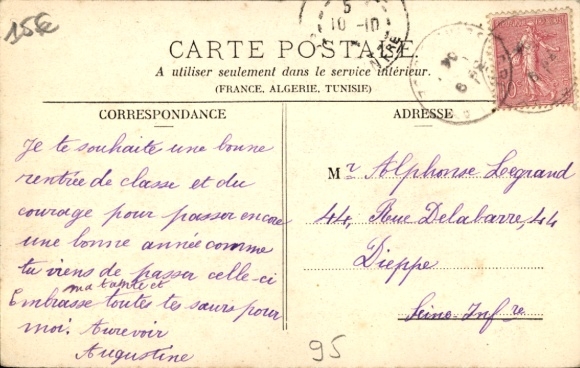 15€
5
10-10
CARTE POSTALE
A utiliser seulement dans le service intérieur.
(FRANCE, ALGERIE, TUNISIE)
CORRESPONDANCE
Je te souhaite une bonne
rentrée de classe et du
courage pour passer encore
une bonne année comme
tu viens de passer celle-ci
ma tante et
Embrasse toutes tes sœurs pour
moi. Aurevoir
Augustine
ADRESSE
Mr Alphonse Legrand
44, Rue Delabarre, 44
Dieppe
Seine-Infre
95